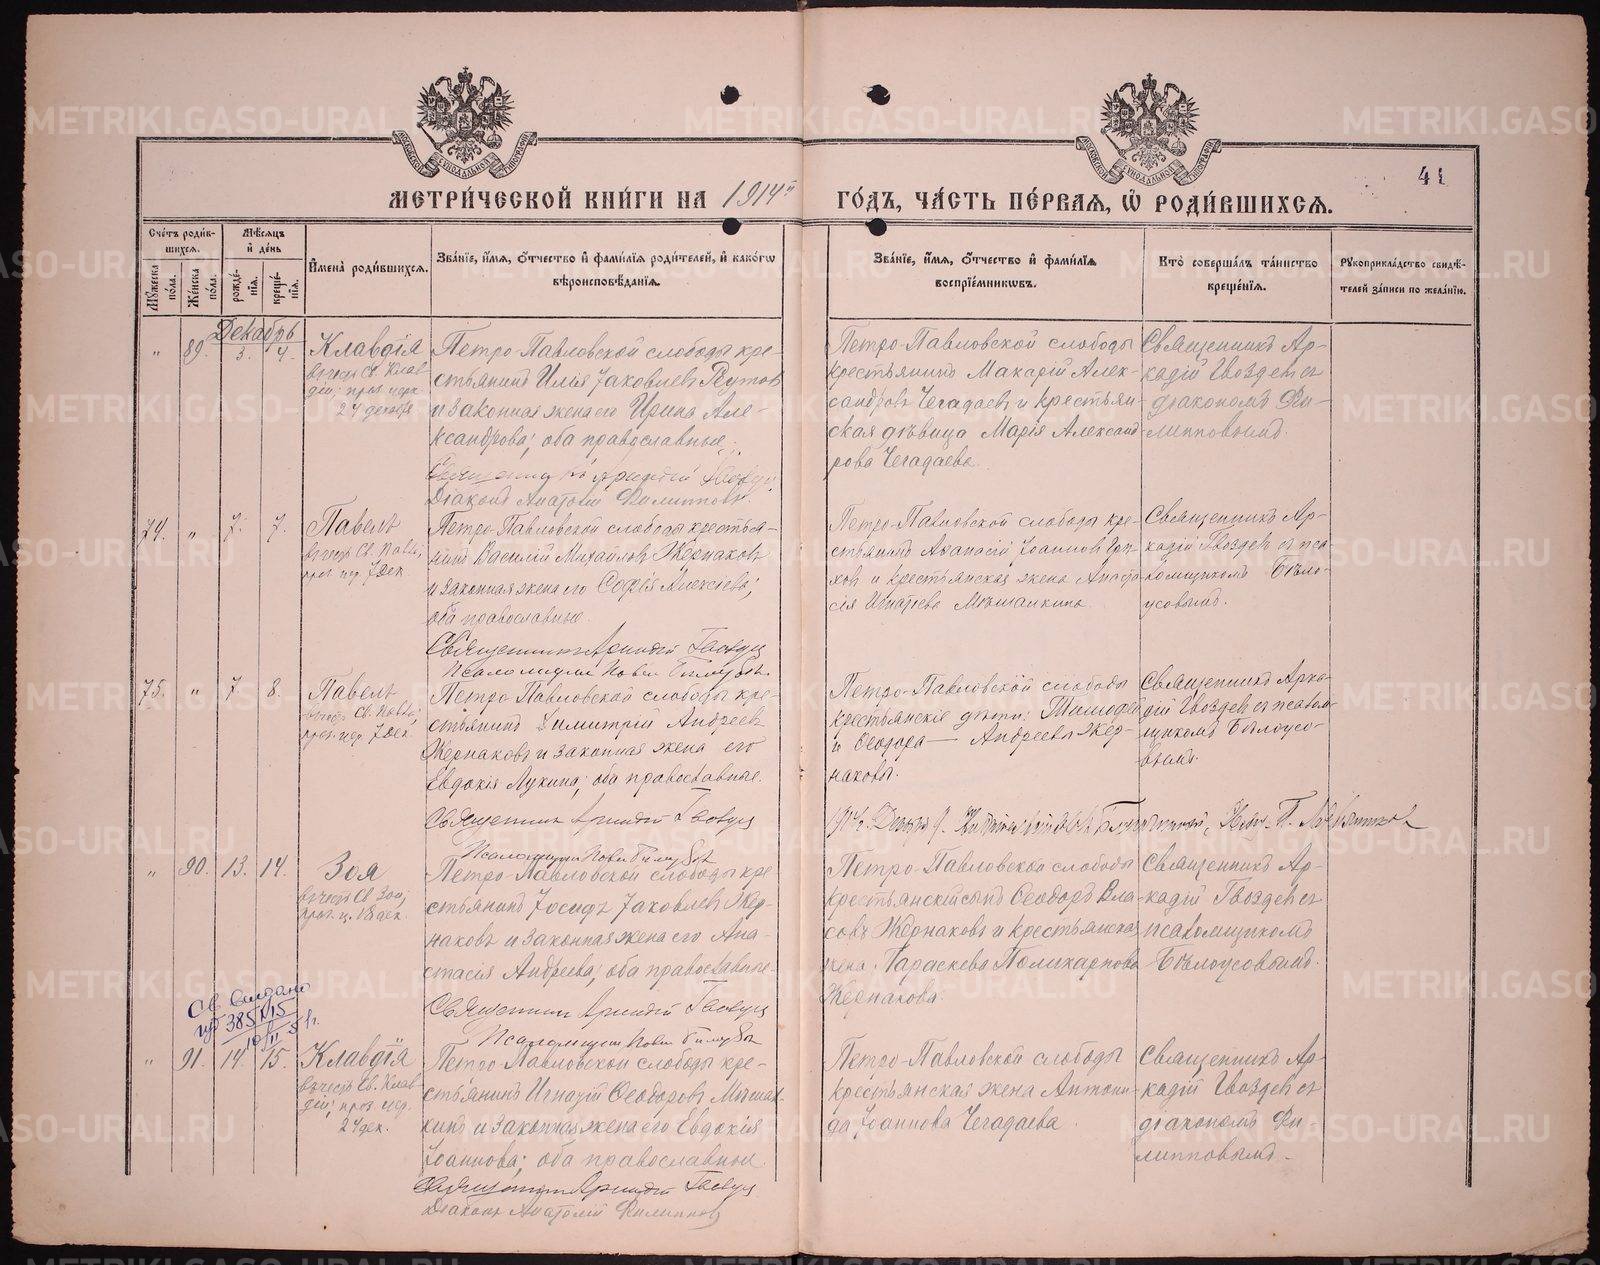 МЕТРИ́ЧЕСКОЙ КНИ́ГИ НА 1914й ГО́ДЪ, ЧА́СТЬ ПЕ́РВАЯ, Ѡ҆ РОДИ́ВШИХСЯ.
41
Сче́тъ роди́в-
шихся.
Му́жеска по́ла.
Же́нска по́ла.
Мѣ́сяцъ
и҆ де́нь
рожде́-
нїя.
креще́-
нїя.
И҆мена̀ роди́вшихся.
Зва́нїе, и҆́мя, ѻ҆́тчество и҆ фами́лїя роди́телей, и҆ како́гѡ
вѣроисповѣ́данїя.
Зва́нїе, и҆́мя, ѻ҆́тчество и҆ фами́лїя
воспрїе́мникѡвъ.
Кто̀ соверша́лъ та́инство
креще́нїя.
Рꙋкоприкла́дство свидѣ́-
телей за́писи по жела́нїю.
Декабрь
" 89. 3. 4.
Клавдія
въ честь Св. Клав
діи; праз. церк.
24 декабря
Петро-Павловской слободы кре-
стьянинъ Илія Іаковлевъ Реутовъ
и законная жена его Ирина Але-
ксандрова; оба православные.
Діаконъ Анатолій Филипповъ.
Петро-Павловской слободы
крестьянинъ Макарій Алек-
сандровъ Чегадаевъ и крестьян-
ская дѣвица Марія Александ-
рова Чегадаева.
Священникъ Ар-
кадій Гвоздевъ съ
діакономъ Фи-
липповымъ.
74. " 7. 7.
Павелъ
въ честь Св. Павла;
праз. цер. 7 дек.
Петро-Павловской слободы крестья-
нинъ Василій Михайловъ Жернаковъ
и законная жена его Софія Алексіева;
оба православные.
Священникъ Аркадій Гвоздевъ
Петро-Павловской слободы кре-
стьянинъ Аѳанасій Іоанновъ
и крестьянская жена Анаста
сія Игнатіева Мѣшалкина.
Священникъ Ар-
кадій Гвоздевъ съ пса-
ломщикомъ Бѣло-
усовымъ.
75. " 7 8.
Павелъ
въ честь Св. Павла;
праз. цер. 7 дек.
Петро-Павловской слободы кре-
стьянинъ Димитрій Андреевъ
Жернаковъ и законная жена его
Евдокія Лукина; оба православные.
Священникъ Аркадій Гвоздевъ
Петро-Павловской слободы
крестьянскіе дѣти: Тимоѳей
и Ѳеодора — Андреевы Жер-
наковы.
Священникъ Арка-
дій Гвоздевъ съ псалом-
щикомъ Бѣлоусо-
вымъ.
" 90. 13. 14.
Зоя
въ честь Св. Зои;
праз. ц. 18 дек.
Петро-Павловской слободы кре-
стьянинъ Іосифъ Іаковлевъ Жер-
наковъ и законная жена его Ана-
стасія Андреева; оба православные.
Священникъ Аркадій Гвоздевъ
Петро-Павловской слободы
крестьянскій сынъ Ѳеодоръ Вла-
совъ Жернаковъ и крестьянская
жена Параскева Поликарпова
Жернакова.
Священникъ Ар-
кадій Гвоздевъ съ
псаломщикомъ
Бѣлоусовымъ.
Св. выдано
" 91. 14. 15.
Клавдія
въ честь Св. Клав
діи; праз. цер.
24 дек.
Петро-Павловской слободы кре-
стьянинъ Игнатій Ѳеодоровъ Мѣшал-
кинъ и законная жена его Евдокія
Іоаннова; оба православные.
Священникъ Аркадій Гвоздевъ
Діаконъ Анатолій Филипповъ
Петро-Павловской слободы
крестьянская жена Антони-
да Іоаннова Чегадаева.
Священникъ Ар-
кадій Гвоздевъ съ
діакономъ Фи-
липповымъ.
METRIKI.GASO-URAL.RU